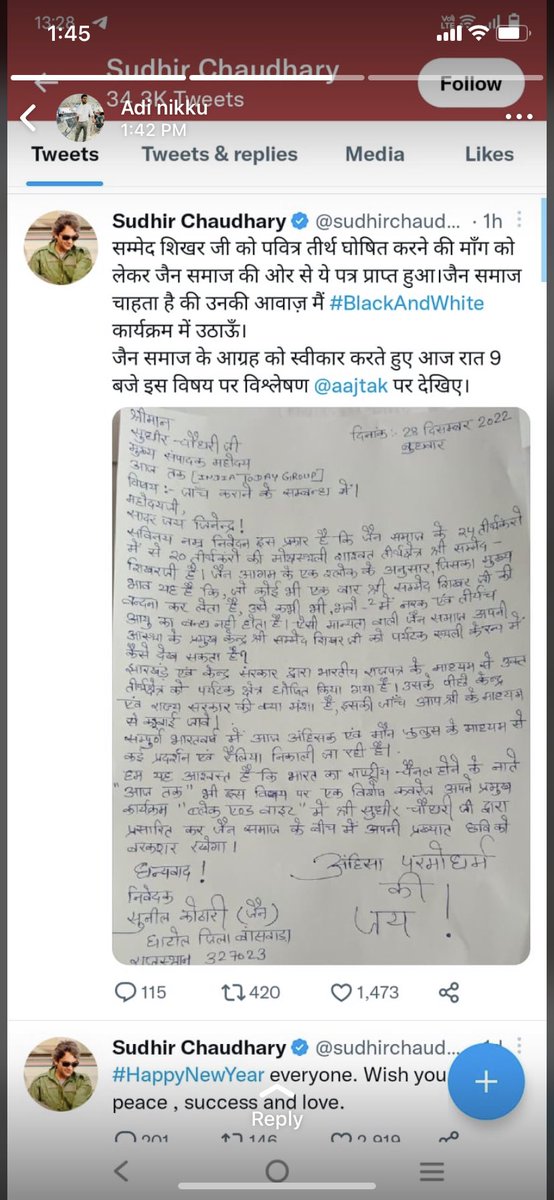 13:28
1:45
Sudhir Chaudhary
34.3K Tweets
Follow
Adi nikku
1:42 PM
Tweets
Tweets & replies
Media
Likes
Sudhir Chaudhary @sudhirchaud... · 1h
सम्मेद शिखर जी को पवित्र तीर्थ घोषित करने की माँग को
लेकर जैन समाज की ओर से ये पत्र प्राप्त हुआ।जैन समाज
चाहता है की उनकी आवाज़ मैं #BlackAndWhite
कार्यक्रम में उठाऊँ।
जैन समाज के आग्रह को स्वीकार करते हुए आज रात 9
बजे इस विषय पर विश्लेषण @aajtak पर देखिए।
श्रीमान
सुधीर चौधरी जी
दिनांक:- 28 दिसम्बर 2022
बुधवार
मुख्य संपादक महोदय
आज तक [INDIA TODAY GROUP]
विषय :- जाँच कराने के सम्बन्ध में।
महोदयजी,
सादर जय जिनेन्द्र!
सविनय नम्र निवेदन इस प्रकार है कि जैन समाज के 24 तीर्थंकरो
में से 20 तीर्थंकरो की मोक्षस्थली शाश्वत तीर्थक्षेत्र श्री सम्मेद-
शिखरजी है। जैन आगम के एक श्लोक के अनुसार, जिसका मुख्य
भाव यह है कि, जो कोई भी एक बार श्री सम्मेद शिखर जी की
वन्दना कर लेता है, उसे कभी भी, भवो-2 में नरक एवं तीर्यंच
आयु का बन्ध नहीं होता है। ऐसी मान्यता वाली जैन समाज अपनी
आस्था के प्रमुख केन्द्र श्री सम्मेद शिखर जी को पर्यटक स्थली के रूप में
कैसे देख सकता है?
झारखंड एवं केन्द्र सरकार द्वारा भारतीय राजपत्र के माध्यम से उक्त
तीर्थक्षेत्र को पर्यटक क्षेत्र घोषित किया गया है। उसके पीछे केन्द्र
एवं राज्य सरकार की क्या मंशा है, इसकी जाँच आप श्री के माध्यम
से करवाई जावे।
सम्पूर्ण भारतवर्ष में आज अहिंसक एवं मौन जुलुस के माध्यम से
कई प्रदर्शन एवं रैलिया निकाली जा रही है।
हम यह आश्वस्त है कि भारत का राष्ट्रीय चैनल होने के नाते
"आज तक" भी इस विषय पर एक विशेष कवरेज अपने प्रमुख
कार्यक्रम "ब्लेक एण्ड वाइट" में श्री सुधीर चौधरी जी द्वारा
प्रसारित कर जैन समाज के बीच में अपनी प्रख्यात छवि को
बरकरार रखेगा।
धन्यवाद!
अहिंसा परमोधर्म
की
जय!
निवेदक
सुनील कोठारी (जैन)
घाटोल जिला बांसवाडा
राजस्थान 327023
115
420
1,473
Sudhir Chaudhary @sudhirchaud...
#HappyNewYear everyone. Wish you
peace , success and love.
Reply
201
146
2,919